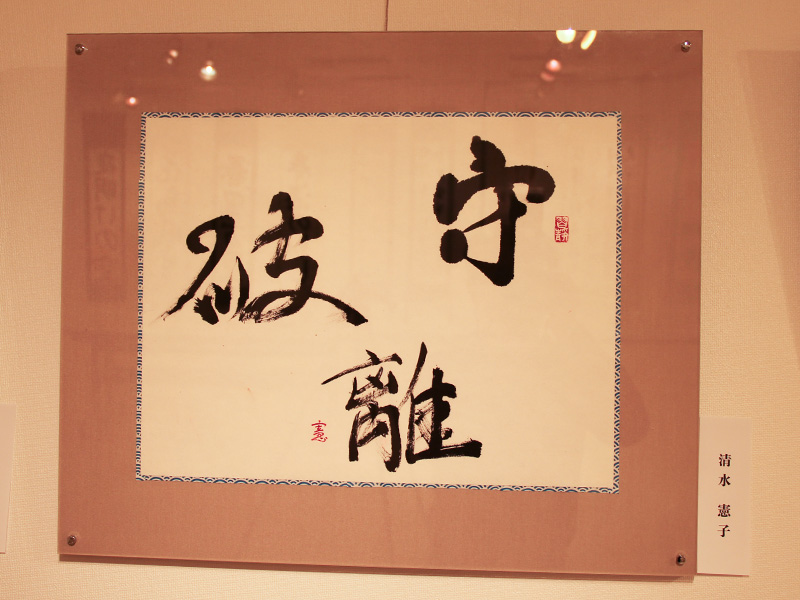 守
破
離
憲
清水 憲子